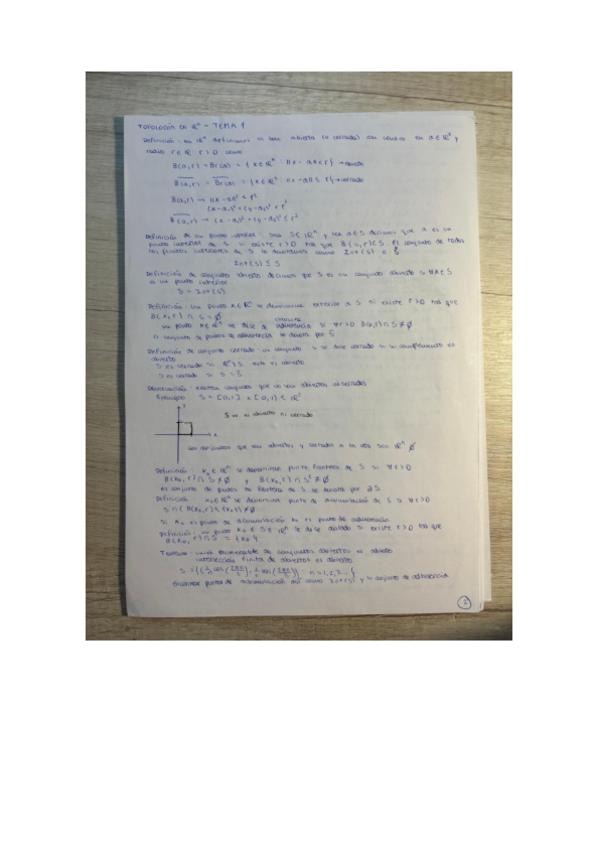 TOPOLOGÍA EN ℝⁿ - TEMA 1
Definición: en ℝⁿ definimos la bola abierta (o cerrada) con centro en a∈ℝⁿ y
radio r∈ℝ r>0 como
B(a,r) = Br(a) = {x∈ℝⁿ : ||x-a||<r} → abierta
B(a,r) = Br(a) = {x∈ℝⁿ : ||x-a||≤r} → cerrada
B(a,r) → ||x-a||² < r²
(x-a₁)² + (y-a₂)² < r²
B(a,r) → (x-a₁)² + (y-a₂)² ≤ r²
Definición de un punto interior: sea S⊂ℝⁿ y sea a∈S decimos que a es un
punto interior de S si existe r>0 tal que B(a,r)⊂S. El conjunto de todos
los puntos interiores de S lo denotamos como Int(S) o
Int(S) ⊆ S
Definición de conjunto abierto decimos que S es un conjunto abierto si ∀x∈S
es un punto interior
S = Int(S)
Definición: un punto x∈ℝⁿ se denomina exterior a S si existe r>0 tal que
B(x,r) ∩ S = ∅
clausura
un punto x∈ℝⁿ se dice de adherencia si ∀r>0 B(x,r)∩S≠∅
El conjunto de puntos de adherencia se denota por S
Definición de conjunto cerrado: un conjunto S se dice cerrado si su complemento es
abierto
S es cerrado si ℝⁿ\S es abierto
S es cerrado si S = S
Observación: existen conjuntos que no son abiertos ni cerrados
Ejemplo: S = [0,1] × [0,1) ⊂ ℝ²
y
S no es abierto ni cerrado
x
Los conjuntos que son abiertos y cerrados a la vez son ℝⁿ ∅
Definición: x₀∈ℝⁿ se denomina punto frontera de S si ∀r>0
B(x₀,r)∩S≠∅ y B(x₀,r)∩Sᶜ≠∅
El conjunto de puntos de frontera de S se denota por ∂S
Definición x₀∈ℝⁿ se denomina punto de acumulación de S si ∀r>0
S∩(B(x₀,r)\{x₀})≠∅
Si x₀ es punto de acumulación x₀ es punto de adherencia
Definición: un punto x₀∈S⊂ℝⁿ se dice aislado si existe r>0 tal que
B(x₀,r)∩S = {x₀}
Teorema: unión numerable de conjuntos abiertos es abierto
intersección finita de abiertos es abierto
n=1,2,3...}
Encontrar puntos de acumulación así como Int(S) y su conjunto de adherencia
2